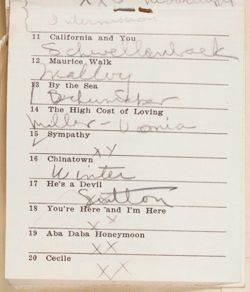 Intermission
11 California and You
Schwellenback
12 Maurice Walk
Mallory
13 By the Sea
14 The High Cost of Loving
Miller -
15 Sympathy
XY
16 Chinatown
Winter
17 He's a Devil
Sutton
18 You're Here and I'm Here
XX
19 Aba Daba Honeymoon
XX
20 Cecile
XX